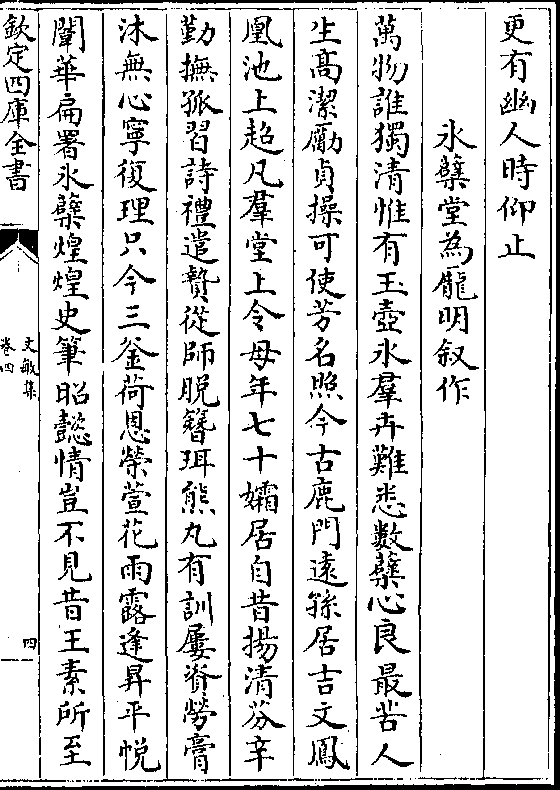 更有幽人時仰止
氷蘗堂為龎明叙作
萬物誰獨清惟有玉壺氷羣卉難悉數蘗心良最苦人
生髙潔勵貞操可使芳名照今古鹿門逺孫居吉文鳳
凰池上超凡羣堂上令母年七十孀居自昔揚清芬辛
勤撫孤習詩禮遣贄從師脱簪珥熊丸有訓屢資勞膏
沐無心寧復理只今三釜荷恩榮萱花雨露逢昇平悅
闈華扁署氷蘗煌煌史筆昭懿情豈不見昔王素所至
欽定四庫全書
文敏集
卷四
四